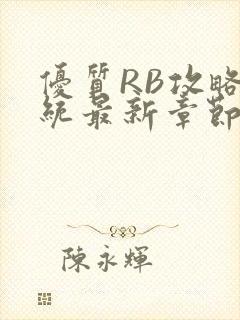 優質RB攻略
統最新章節
陳永輝